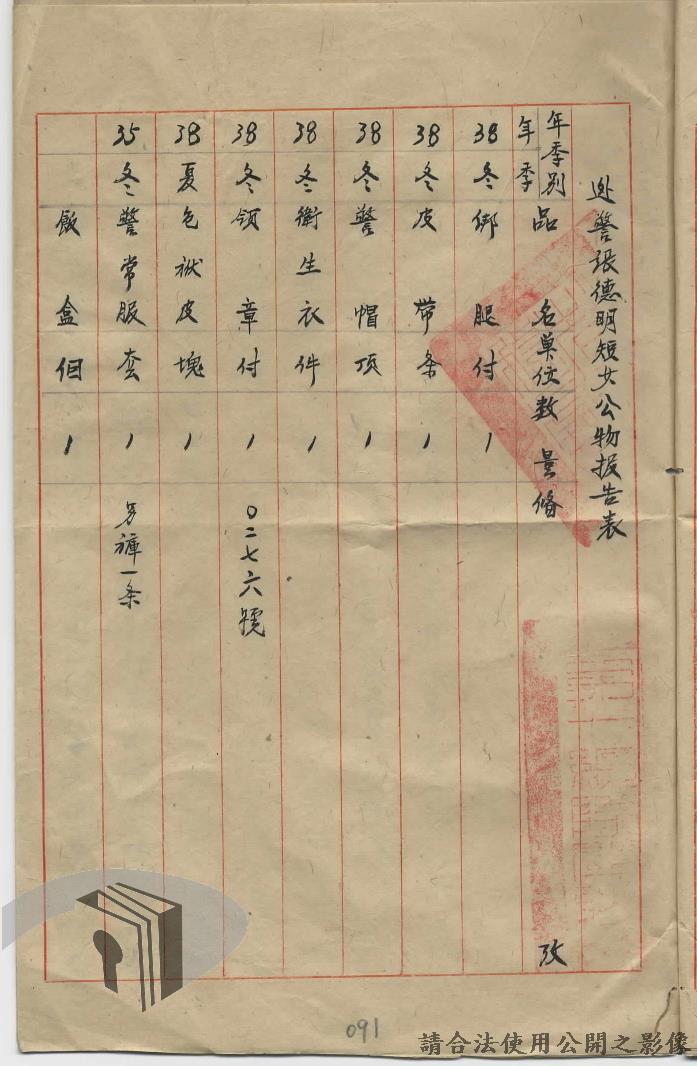 逃警張德明短欠公物報告表
年季別品名單位數量備攷
年季
38冬綁腿付1
38冬皮帶条1
38冬警帽頂1
38冬衛生衣件1
38冬領章付1 0二七六號
38夏包袱皮塊1
35冬警常服套1 另褲一条
飯盒個1
091
請合法使用公開之影像